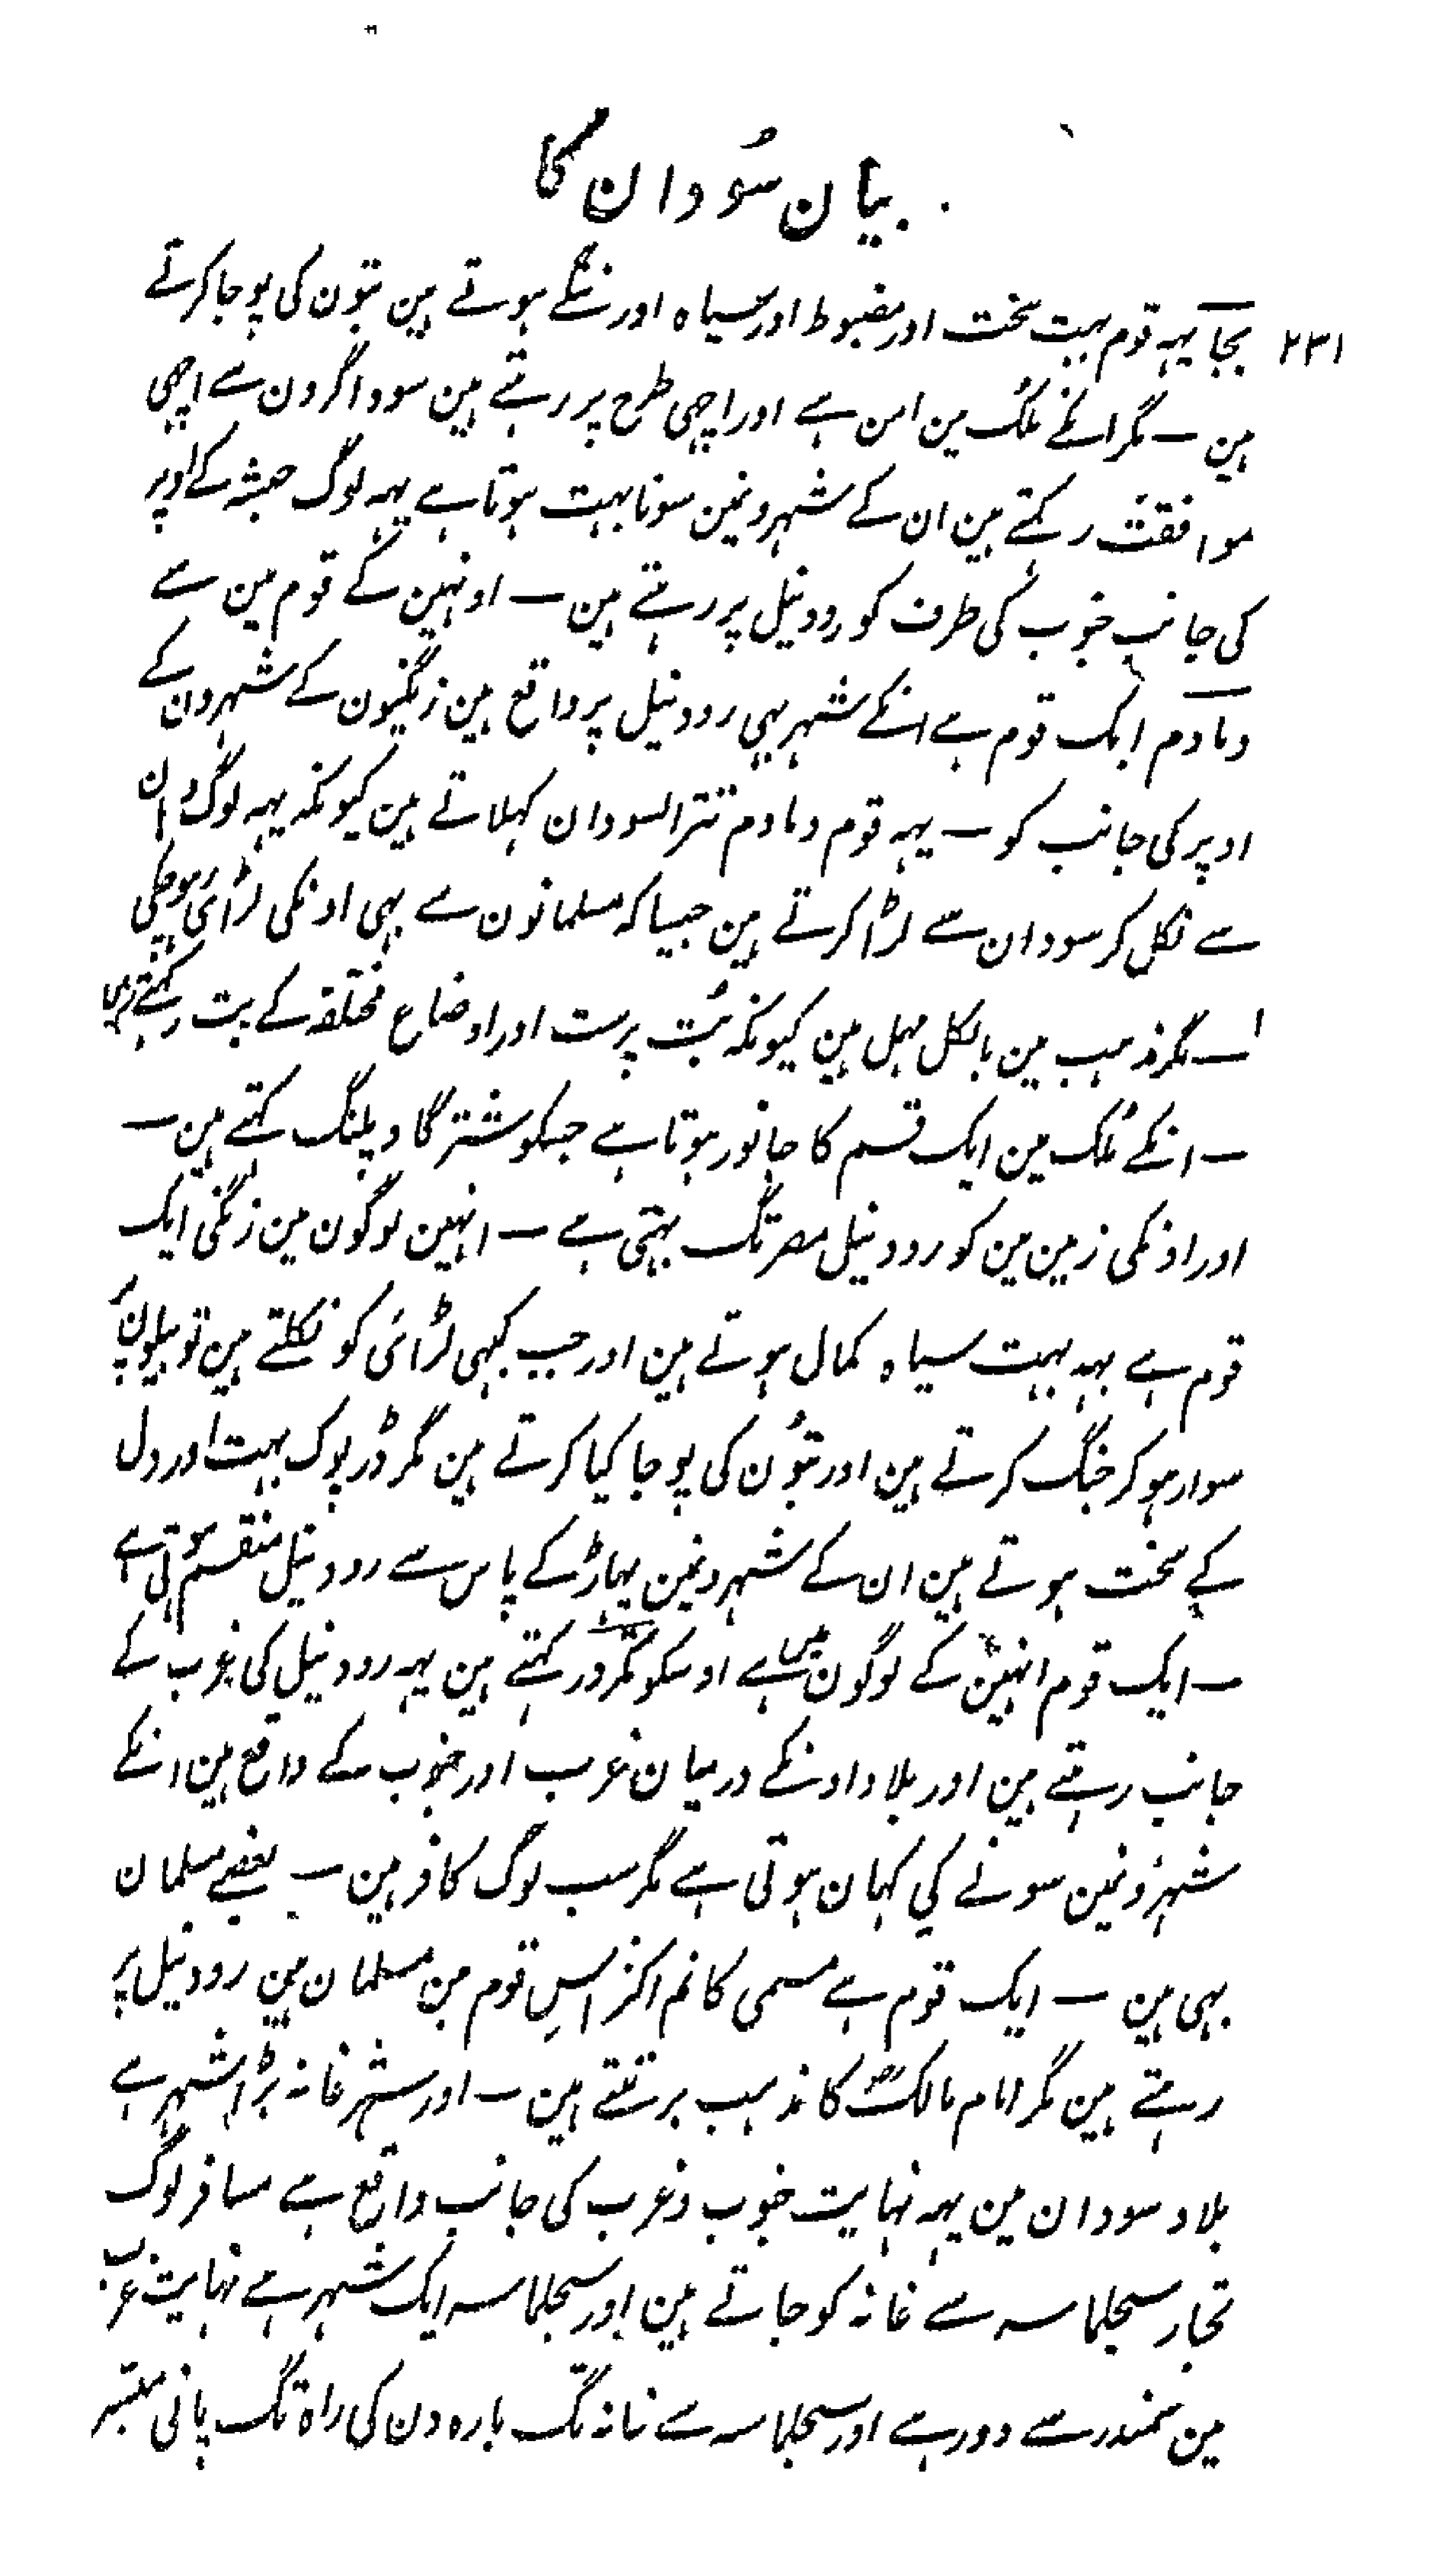 بیان سُودان کا
۲۳۱ بجا یہہ قوم بہت سخت اور مضبوط اور سیاہ اور ننگے ہوتے ہین بتون کی پوجا کرتے
ہین — مگر انکے ملک مین امن ہے اور اچہی طرح پر رہتے ہین سوداگرون سے اچہی
موافقت رکہتے ہین ان کے شہرونمین سونا بہت ہوتا ہے یہہ لوگ حبشہ کے اوپر
کی جانب جنوب کی طرف کو رود نیل پر رہتے ہین — اونہین کے قوم مین سے
دمادم ایک قوم ہے انکے شہر بہی رود نیل پر واقع ہین زنگیون کے شہرون کے
اوپر کی جانب کو — یہہ قوم دمادم تترالسودان کہلاتے ہین کیونکہ یہہ لوگ وہان
سے نکل کر سودان سے لڑا کرتے ہین جیسا کہ مسلمانون سے بہی اونکی لڑائی ہو چکی
— مگر مذہب مین بالکل مہمل ہین کیونکہ بُت پرست اور اوضاع مختلفہ کے بت رکہتے ہین
— انکے مُلک مین ایک قسم کا جانور ہوتا ہے جسکو شتر گاو پلنگ کہتے ہین —
اور اونکی زمین مین کو رود نیل مصر تک بہتی ہے — انہین لوگون مین زنگی ایک
قوم ہے یہہ بہت سیاہ کمال ہوتے ہین اور جب کبہی لڑائی کو نکلتے ہین تو بیلون پر
سوار ہو کر جنگ کرتے ہین اور بتُون کی پوجا کیا کرتے ہین مگر ڈرپوک بہت اور دل
کے سخت ہوتے ہین ان کے شہرونمین پہاڑ کے پاس سے رود نیل منقسم ہوتی ہے
— ایک قوم انہین کے لوگون مین ہے اوسکو تکرور کہتے ہین یہہ رود نیل کی غرب کے
جانب رہتے ہین اور بلاد اونکے درمیان غرب اور جنوب کے واقع ہین انکے
شہرونمین سونے کی کہان ہوتی ہے مگر سب لوگ کافر ہین — بعضے مسلمان
بہی ہین — ایک قوم ہے مسمی کانم اکثر اسِ قوم مین مسلمان ہین رود نیل پر
رہتے ہین مگر امام مالکؒ کا مذہب برتتے ہین — اور شہر غانہ بڑا شہر ہے
بلاد سودان مین یہہ نہایت جنوب و غرب کی جانب واقع ہے مسافر لوگ
تجار سجلماسہ سے غانہ کو جاتے ہین اور سجلماسہ ایک شہر ہے نہایت غرب
مین سمندر سے دور ہے اور سجلماسہ سے غانہ تک بارہ دن کی راہ تک پانی میسر